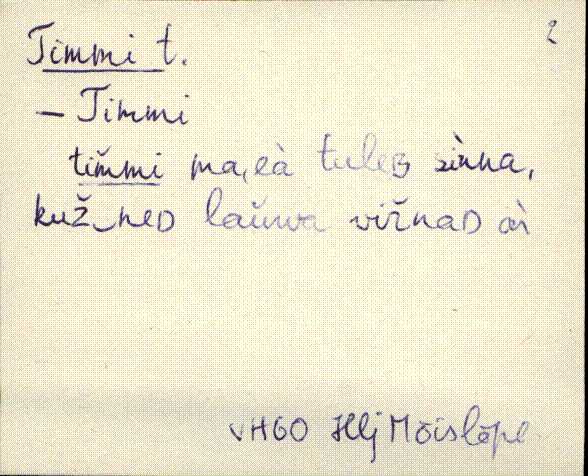 2
Timmi t.
— Timmi
tim̆mi ma, eà tuleʙ sìnna,
kuž‿neᴅ lăuwa vir̆naᴅ òi
VHGO Hlj Mõislõpe